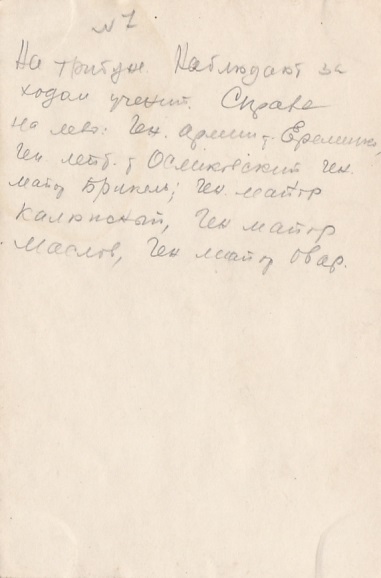 № 1
На трибуне. Наблюдают за
ходом учений. Справа
на лево: Ген. армии т. Еременко,
Ген лейт. т Осликовский Ген.
майор Брикель; Ген. майор
Калюжный, Ген майор
Маслов, Ген майор Овар.